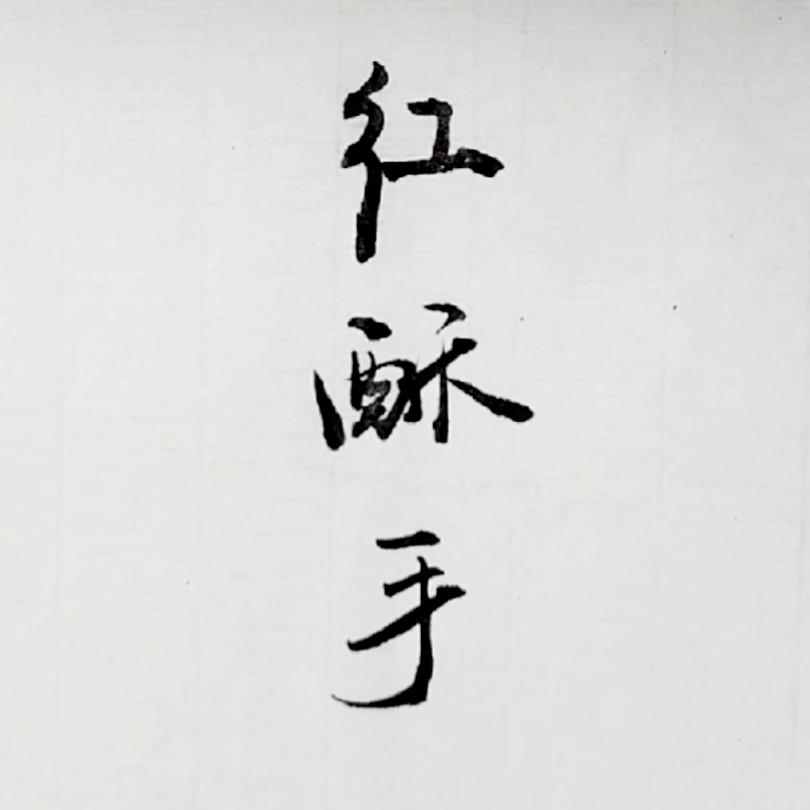 红酥手